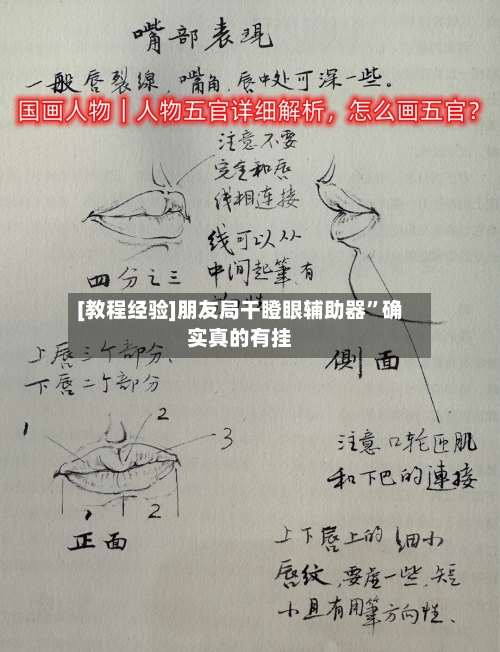 嘴部表現
一般唇裂線，嘴角，唇中处可深一些。
国画人物｜人物五官详细解析，怎么画五官？
注意不要
完全和唇
线相连接
线可以从
中间起筆，有
四分之三
[教程经验]朋友局干瞪眼辅助器”确
实真的有挂
上唇三个部分、
下唇二个部分
側面
1
2
3
1
2
正面
注意口轮匝肌
和下巴的連接
上下唇上的细小
唇纹，要虚一些，短
小且有用筆方向性、